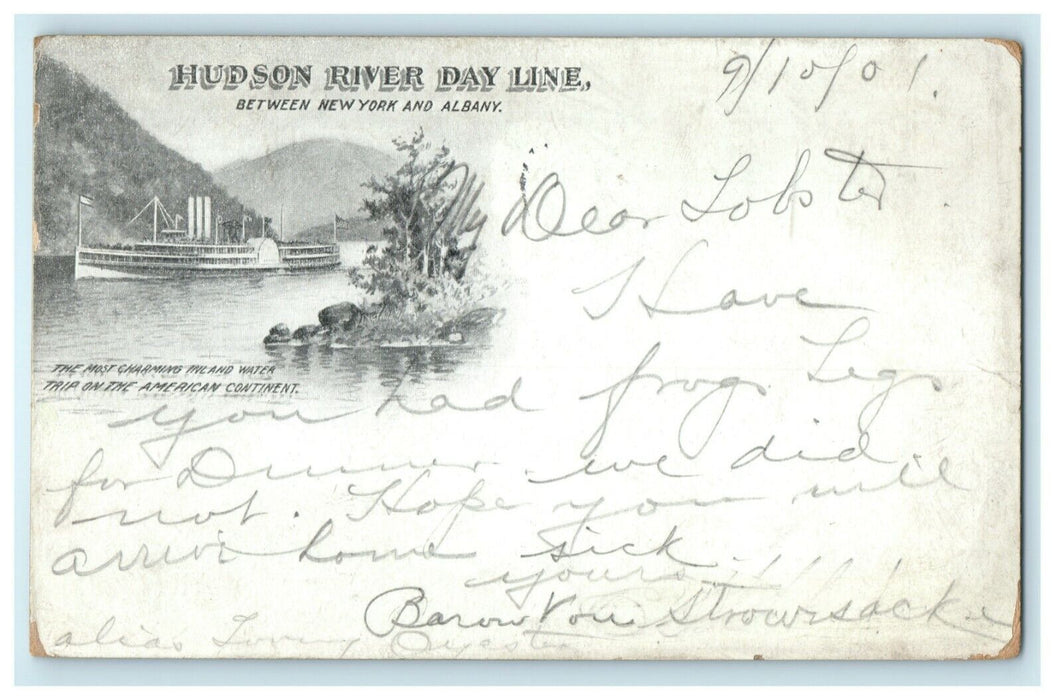 HUDSON RIVER DAY LINE,
BETWEEN NEW YORK AND ALBANY.
9/10/01.
My Dear Lobster
Have
you had frogs Legs
for Dinner. we did
not. Hope you will
arrive home sick
yours
Baron Von Strowsacke
alias Loving Oyster
THE MOST CHARMING INLAND WATER
TRIP ON THE AMERICAN CONTINENT.